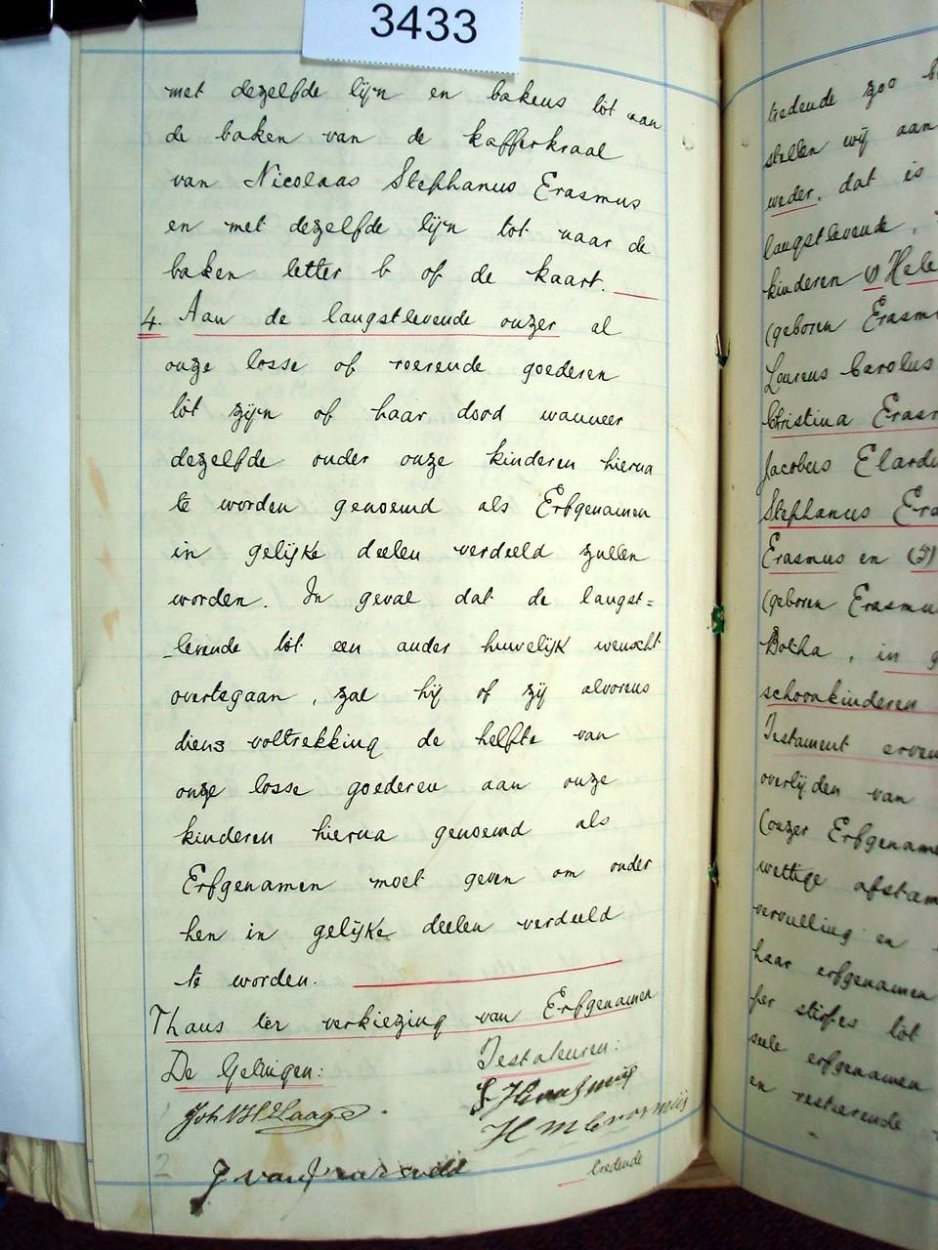 3433
met dezelfde lijn en bakens tot aan
de baken van de kafferkraal
van Nicolaas Stephanus Erasmus
en met dezelfde lijn tot naar de
baken letter b of de kaart.
4. Aan de langstlevende onzer al
onze losse of roerende goederen
tot zijn of haar dood wanneer
dezelfde onder onze kinderen hierna
te worden genoemd als Erfgenamen
in gelijke deelen verdeeld zullen
worden. In geval dat de langst=
levende tot een ander huwelijk wenscht
overtegaan, zal hij of zij alvorens
diens voltrekking de helfte van
onze losse goederen aan onze
kinderen hierna genoemd als
Erfgenamen moet geven om onder
hen in gelijke deelen verdeeld
te worden.
Thans ter verkiezing van Erfgenamen
De Getuigen: Testateuren:
tredende
tredende zoo
stellen wij aan
weder, dat is
langstlevende,
kinderen (1) Hele
(geboren Erasm
Lourens Carolus
Christina Erasm
Jacobus Elardu
Stephanus Era
Erasmus en (5)
(geboren Erasmu
Botha, in g
schoonkinderen
Testament erven
overlijden van
(onzer Erfgename
wettige afstam
vervulling en
haar erfgenamen
per stirpes tot
erfgenamen
en resteerende